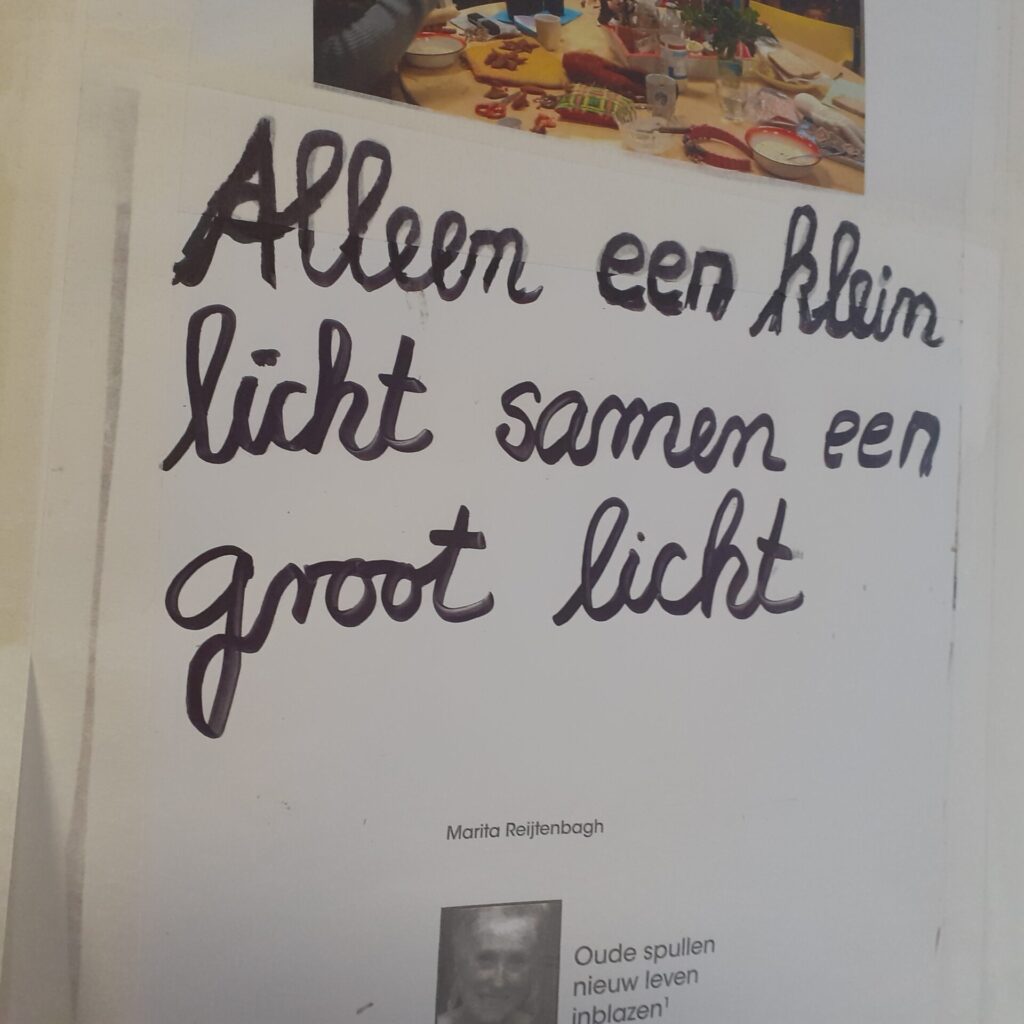 Alleen een klein
licht samen een
groot licht
Marita Reijtenbagh
Oude spullen
nieuw leven
inblazen¹